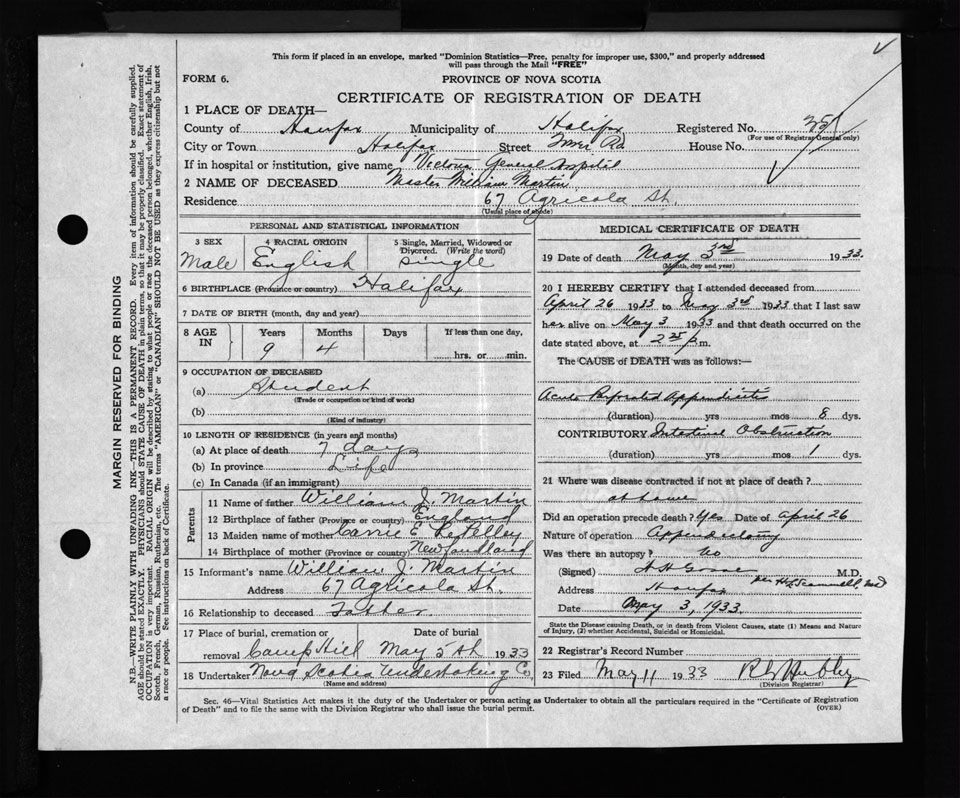 This form if placed in an envelope, marked "Dominion Statistics—Free, penalty for improper use, $300," and properly addressed
will pass through the Mail "FREE"
FORM 6. PROVINCE OF NOVA SCOTIA
CERTIFICATE OF REGISTRATION OF DEATH
1 PLACE OF DEATH—
County of Halifax Municipality of Halifax Registered No.
(For use of Registrar General only)
City or Town Halifax Street Tower Rd House No.
If in hospital or institution, give name Victoria General Hospital
2 NAME OF DECEASED Master William Martin
Residence 67 Agricola St.
(Usual place of abode)
PERSONAL AND STATISTICAL INFORMATION
3 SEX Male
4 RACIAL ORIGIN English
5 Single, Married, Widowed or Divorced. (Write the word) single
6 BIRTHPLACE (Province or country) Halifax
7 DATE OF BIRTH (month, day and year)
8 AGE IN Years Months Days If less than one day,
9 4 hrs. or min.
9 OCCUPATION OF DECEASED
(a) Student
(Trade or occupation or kind of work)
(b)
(Kind of industry)
10 LENGTH OF RESIDENCE (in years and months)
(a) At place of death 7 days
(b) In province Life
(c) In Canada (if an immigrant)
Parents
11 Name of father William J. Martin
12 Birthplace of father (Province or country) England
13 Maiden name of mother Carrie E.
14 Birthplace of mother (Province or country) Newfoundland
15 Informant's name William J. Martin
Address 67 Agricola St.
16 Relationship to deceased Father
17 Place of burial, cremation or Date of burial
removal Camp Hill May 5th 1933
18 Undertaker Nova Scotia Undertaking Co
(Name and address)
MEDICAL CERTIFICATE OF DEATH
19 Date of death May 3rd 1933.
(Month, day and year)
20 I HEREBY CERTIFY that I attended deceased from
April 26 1933 to May 3rd 1933 that I last saw
her alive on May 3 1933 and that death occurred on the
date stated above, at 2 25 p.m.
The CAUSE of DEATH was as follows:—
Acute Perforated Appendicitis
(duration) yrs mos 8 dys.
CONTRIBUTORY Intestinal Obstruction
(duration) yrs mos 1 dys.
21 Where was disease contracted if not at place of death?
at home
Did an operation precede death? Yes Date of April 26
Nature of operation Appendectomy
Was there an autopsy? No
(Signed) M.D.
Address Halifax
Date May 3, 1933.
State the Disease causing Death, or in death from Violent Causes, state (1) Means and
Nature of Injury, (2) whether Accidental, Suicidal or Homicidal.
22 Registrar's Record Number
23 Filed May 11 1933
(Division Registrar)
Sec. 46—Vital Statistics Act makes it the duty of the Undertaker or person acting as Undertaker to obtain all the particulars required in the "Certificate of Registration
of Death" and to file the same with the Division Registrar who shall issue the burial permit. (OVER)
MARGIN RESERVED FOR BINDING
N.B.—WRITE PLAINLY WITH UNFADING INK—THIS IS A PERMANENT RECORD. Every item of information should be carefully supplied.
AGE should be stated EXACTLY. PHYSICIANS should STATE CAUSE OF DEATH in plain terms, so that it may be properly classified. Exact statement of
OCCUPATION is very important. RACIAL ORIGIN will be described by stating to what people or race the deceased person belonged, whether English, Irish,
Scotch, French, German, Russian, Ruthenian, etc. The terms "AMERICAN" or "CANADIAN" SHOULD NOT BE USED as they express citizenship but not
a race or people. See instructions on back of Certificate.